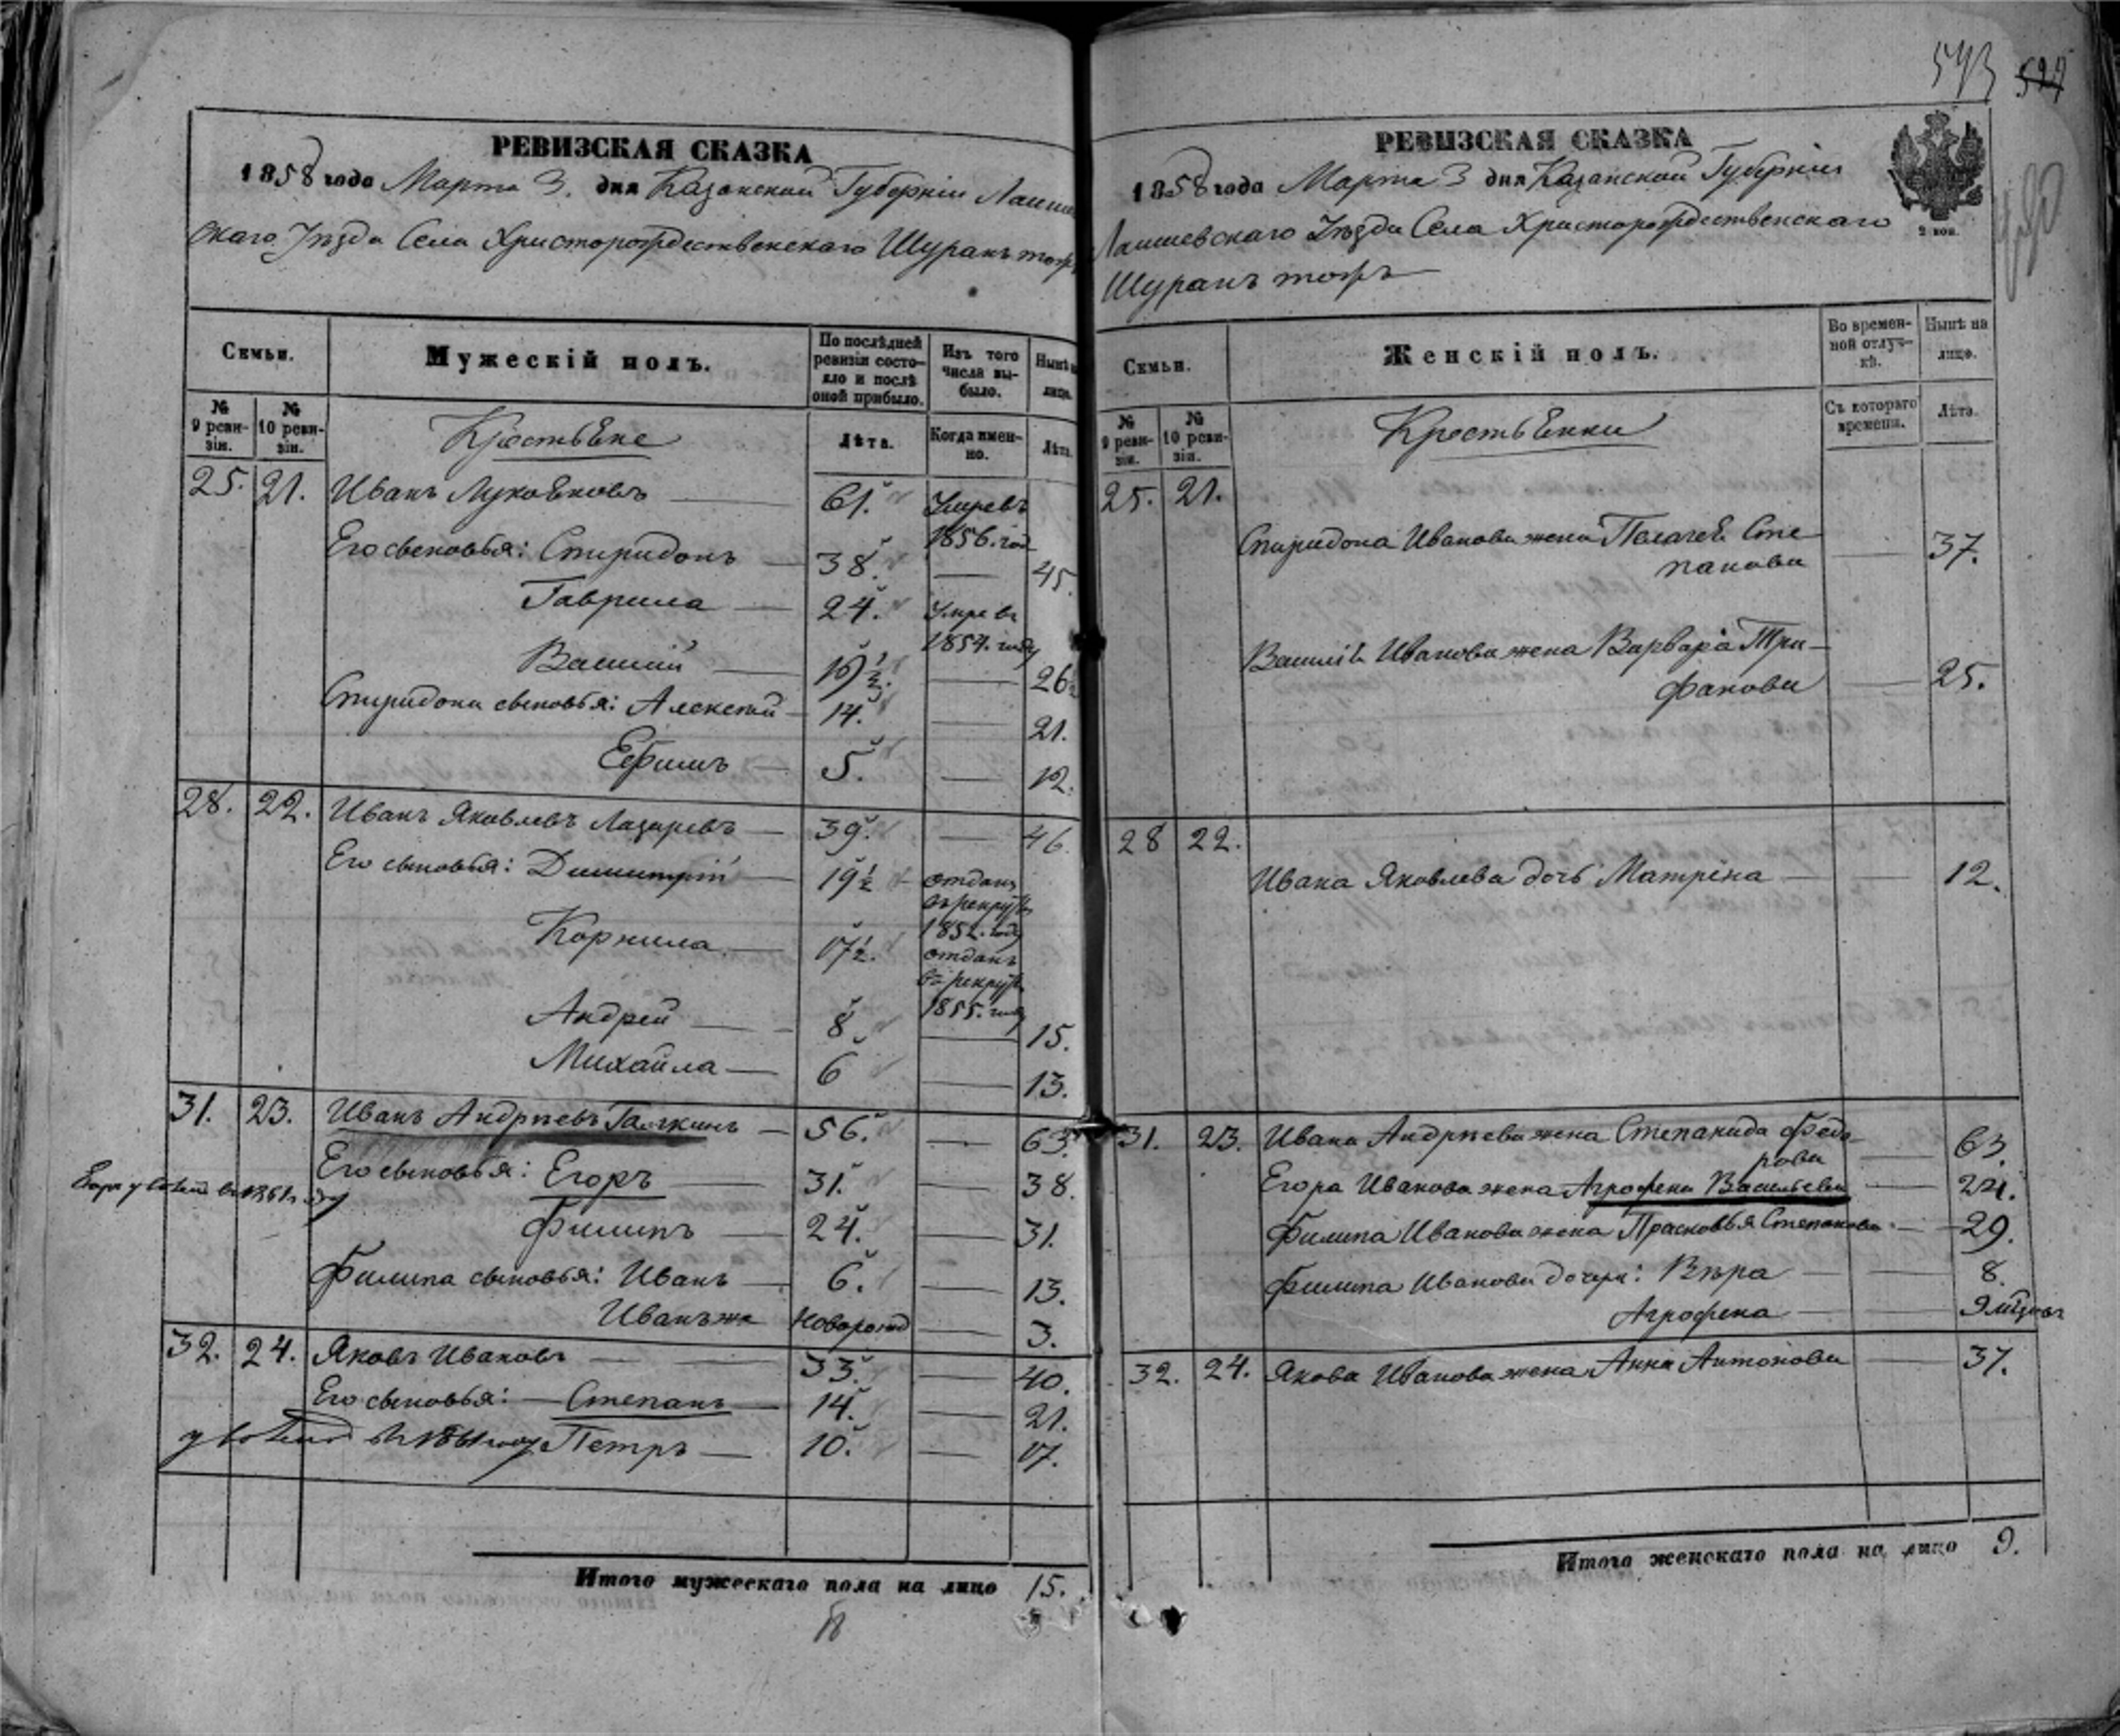 РЕВИЗСКАЯ СКАЗКА
1858 года Марта 3. дня Казанской Губерніи Лаише
скаго Уѣзда Села Христорождественскаго Шуранъ тожъ
Семьи.
Мужескій полъ.
По послѣдней ревизіи состояло и послѣ оной прибыло.
Изъ того числа выбыло.
Нынѣ на лицо.
№ 9 ревизіи.
№ 10 ревизіи.
Крестьяне
Лѣта.
Когда именно.
Лѣта.
25. 21. Иванъ Лукояновъ 61. Умре въ
1856. год
Его сыновья: Спиридонъ 38. — 45.
Гаврила 24. Умре въ
1854. году
Василій 19½. — 26½
Спиридона сыновья: Алексѣй 14. — 21.
Ефимъ 5. — 12.
28. 22. Иванъ Яковлевъ Лазаревъ 39. — 46.
Его сыновья: Димитрій 19½ отданъ
въ рекруты
1852. году
Корнила 17½. отданъ
въ рекруты
1855. году
Андрей 8. — 15.
Михайла 6 — 13.
31. 23. Иванъ Андрѣевъ Галкинъ 56. — 63.
Его сыновья: Егоръ 31. — 38.
Филипъ 24. — 31.
Филипа сыновья: Иванъ 6. — 13.
Иванъ же Новорожд — 3.
32. 24. Яковъ Ивановъ 33. — 40.
Его сыновья: Степанъ 14. — 21.
Петръ 10. — 17.
Итого мужескаго пола на лицо 15.
543 527
РЕВИЗСКАЯ СКАЗКА
1858 года Марта 3 дня Казанской Губерніи
2 коп.
Лаишевскаго Уѣзда Села Христорождественскаго
Шуранъ тожъ
Семьи.
Женскій полъ.
Во временной отлучкѣ.
Нынѣ на лицо.
№ 9 ревизіи.
№ 10 ревизіи.
Крестьянки
Съ котораго времени.
Лѣта.
25. 21.
Спиридона Иванова жена Пелагея Сте-
панова — 37.
Василія Иванова жена Варвара Три-
фанова — 25.
28 22.
Ивана Яковлева дочь Матрена — 12.
31. 23. Ивана Андрѣева жена Степанида Федо-
рова — 63.
Егора Иванова жена Агрофена Васильева —
Филипа Иванова жена Прасковья Степанова — 29.
Филипа Иванова дочери: Вѣра — 8.
Агрофена — 9 мѣцовъ
32. 24. Якова Иванова жена Анна Антонова — 37.
Итого женскаго пола на лицо 9.